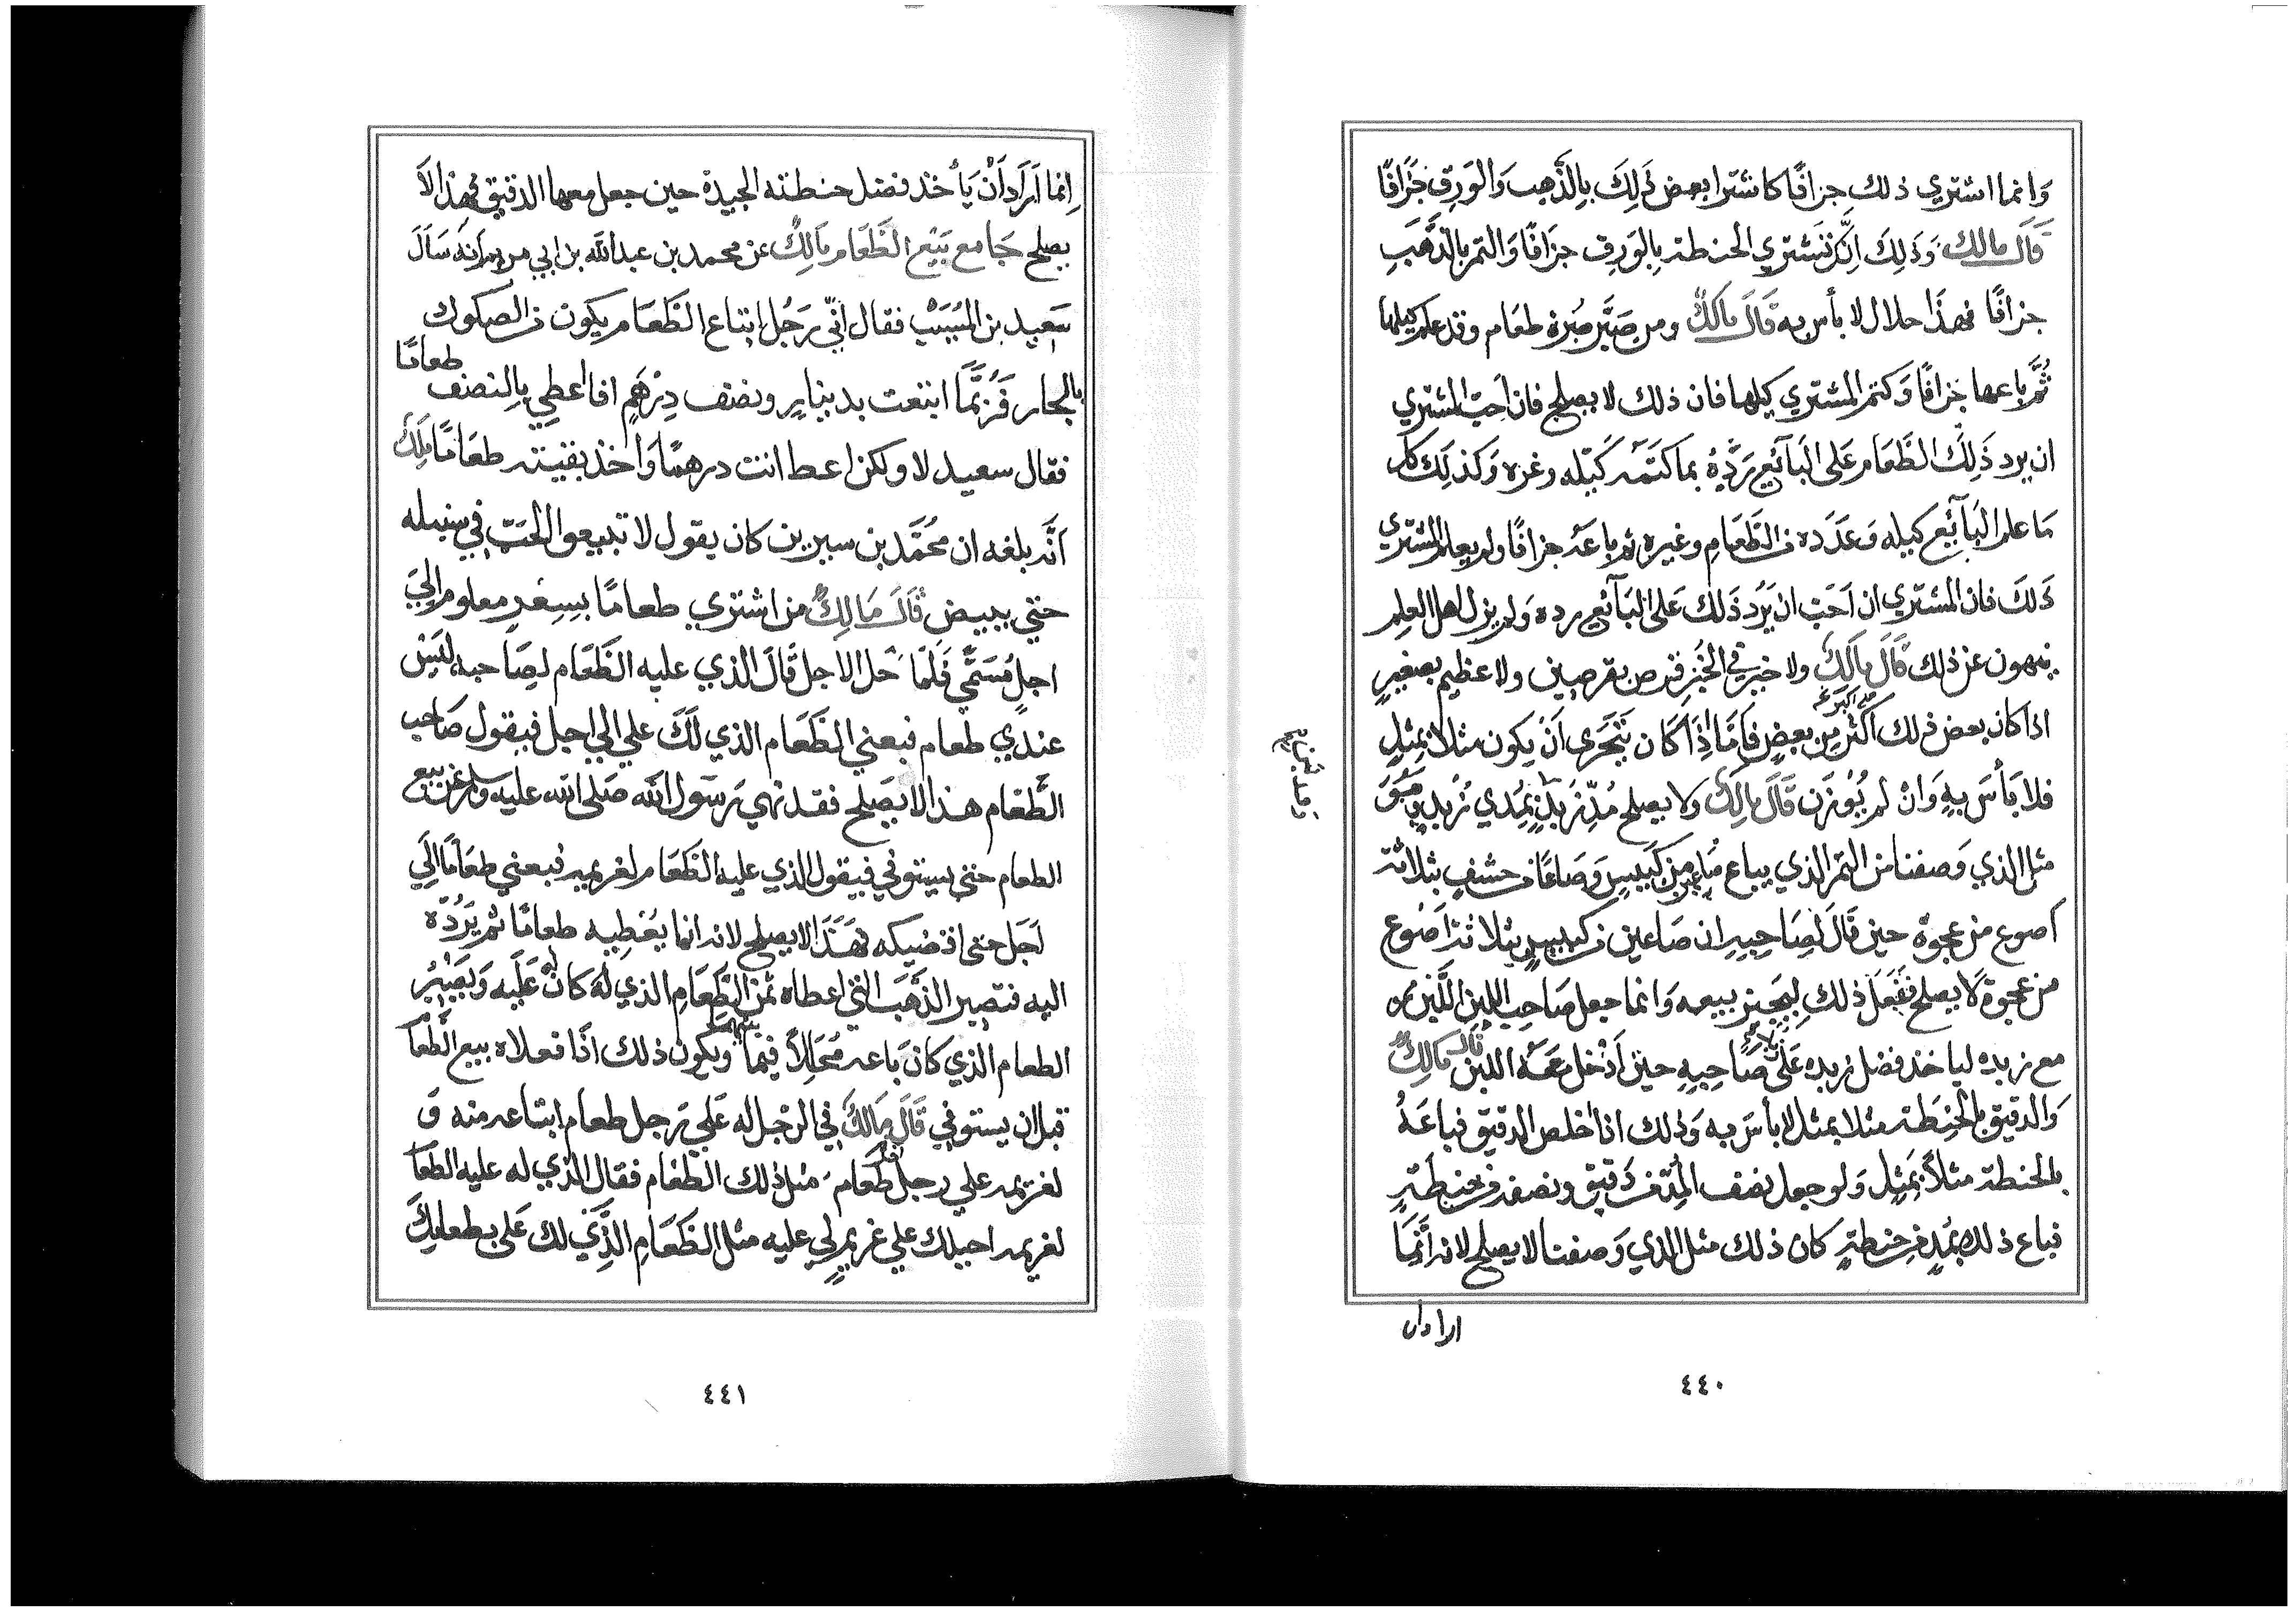 وَانما اشتري ذلك جزافًا كاشترا بعض ذَلِكَ بِالذَّهِب وَالوَرِق جَزَافًا
قَالَ مالك وَذَلِكَ اِنَّكَ تَشتَري الحنطة بِالوَرِق جزَافًا وَالتمر بالذَّهَبِ
جزافًا فهذَا حلال لا بأس به قَالَ مَالكٌ ومن صَبَّر صُبْرة طعَام وقد علم كيلها
ثُمَّ باعها جَزافًا وَكتم المشتري كيلها فان ذلك لا يصلح فان اَحبّ المشتري
ان يرد ذَلِكَ الطَّعَام عَلى البَآئِع رَدَّهُ بما كتمَه كَيْله وغره وَكذلِكَ كل
مَا علم البَآئِع كيله وَعَدَده من الطَّعَامِ وغيره ثم باعَه جزافًا ولم يعلم المشتري
ذَلكَ فان المشتري ان اَحَبّ ان يَرُد ذَلك عَلى البَآئع رده وَلم يزل اهل العِلم
ينهون عن ذلك قَالَ مَالكٌ ولا خير في الخُبْزِ قرص بقرصين ولا عظيم بصغيرٍ
اذا كان بعض ذلك اكثر من بعضٍ فَاَمَّا اِذَا كَان يَتَحَرى اَنْ يكون مثلا بمِثلٍ
اكبر
فلا بَأسَ بِهِ وَانْ لم يُوْزَن قَالَ مَالِكٌ ولا يصلح مُدّ زبدٍ ولبنٍ بمُدي زُبدٍ وَهُوَ
مثل الذي وَصفنا من التمر الذي يباع صَاعين من كَبيسٍ وَصَاعًا من حشفٍ بثلاثة
اَصوع من عجوة حين قَالَ لصَاحِبِه ان صَاعين من كبيسٍ بثلاثة اَصْوع
من عجوة لَا يصلح فَفَعَل ذلك لِيجيز بيعه وَانما جعل صَاحب اللبن اللَّبن
مع زبده لياخذ فضل زبده عَلى صَاحِبِه حين اَدْخل مَعَه اللبن قَالَ مَالِكٌ
وَالدقيق بالحِنطَة مثلا بمثل لا بأسَ به وَذلك انه اَخلص الدقيق فباعَهُ
بالحنطة مثلاً بمَثِلٍ وَلو جعل نصف المُدّ من دَقيقٍ ونصفه من حِنطَةٍ
فباع ذلك بمُدٍ من حِنطةٍ كان ذلك مثل الذي وَصفنا لا يصلح لانه اِنَّمَا
اراد ان
٤٤٠
اِنما اَرَاد اَنْ يَأخذ فضل حنطته الجيدة حين جعل معها الدقيق فهذَا لاَ
يصلح جَامع بَيْعِ الطَّعَام مَالِكٌ عن محمد بن عبد الله بن ابي مريم اَنّه سَاَلَ
سَعِيد بن المُسَيّبْ فقال اِنّي رَجُل ابتاع الطَّعَام يكون من الصكوك
بالجار فَرُبَّمَا ابتعت بدينارٍ ونصف دِرْهَمٍ افاعطي بِالنصف طعامًا
فقال سعيد لا ولكن اعط انت درهمًا وَاخذ بقيته طعَامًا مَالِكٌ
اَنَّه بلغه ان مُحَمَّد بن سيرين كان يقول لا تبيعوا الحَبّ في سنبله
حتي يبيض قَالَ مَالِكٌ من اشتري طعامًا بِسِعْرٍ معلوم اِليَ
اجلٍ مُسَمَّي فَلمَّا حَل الاجل قَالَ الذي عليه الطَّعَام لصَاحبه ليَسْ
عندي طعام فبعني الطَّعَام الذي لَكَ علي الي اجل فيقول صَاحب
الطَّعَام هذا لا يَصلح فقد نهي رَسَول الله صَلى الله عليه وسلم عن بيع
الطعام حتى يستوفي فيقول الذي عليه الطَّعَام لغريمه فبعني طعَامًا اليَ
اَجَل حتى اقضيكه فهَذَا لا يصلح لانه انما يُعْطِيه طعامًا ثم يَرُدّه
اليه فتصير الذَّهَبَ التي اعطاه ثمن الطَّعَام الذي لَه كان عَلَيه وَيَصْيِرُ
الطعام الذي كانَ باعه مُحَلِلاً فيما بينهما ويكون ذلك اذَا فعلاه بيع الطعَا
قبل ان يستوفي قَالَ مَالكٌ في الرَجل له عَلي رَجل طعام ابتاعه منه وَ
لغريمه علي رجل طَعَام مثل ذلك الطعَام فقال الذي له عليه الطعَا
لغريمه احيلك علي غريمٍ لي عليه مثل الطَّعَامِ الَّذِي لك عَلي بطعامِكَ
٤٤١